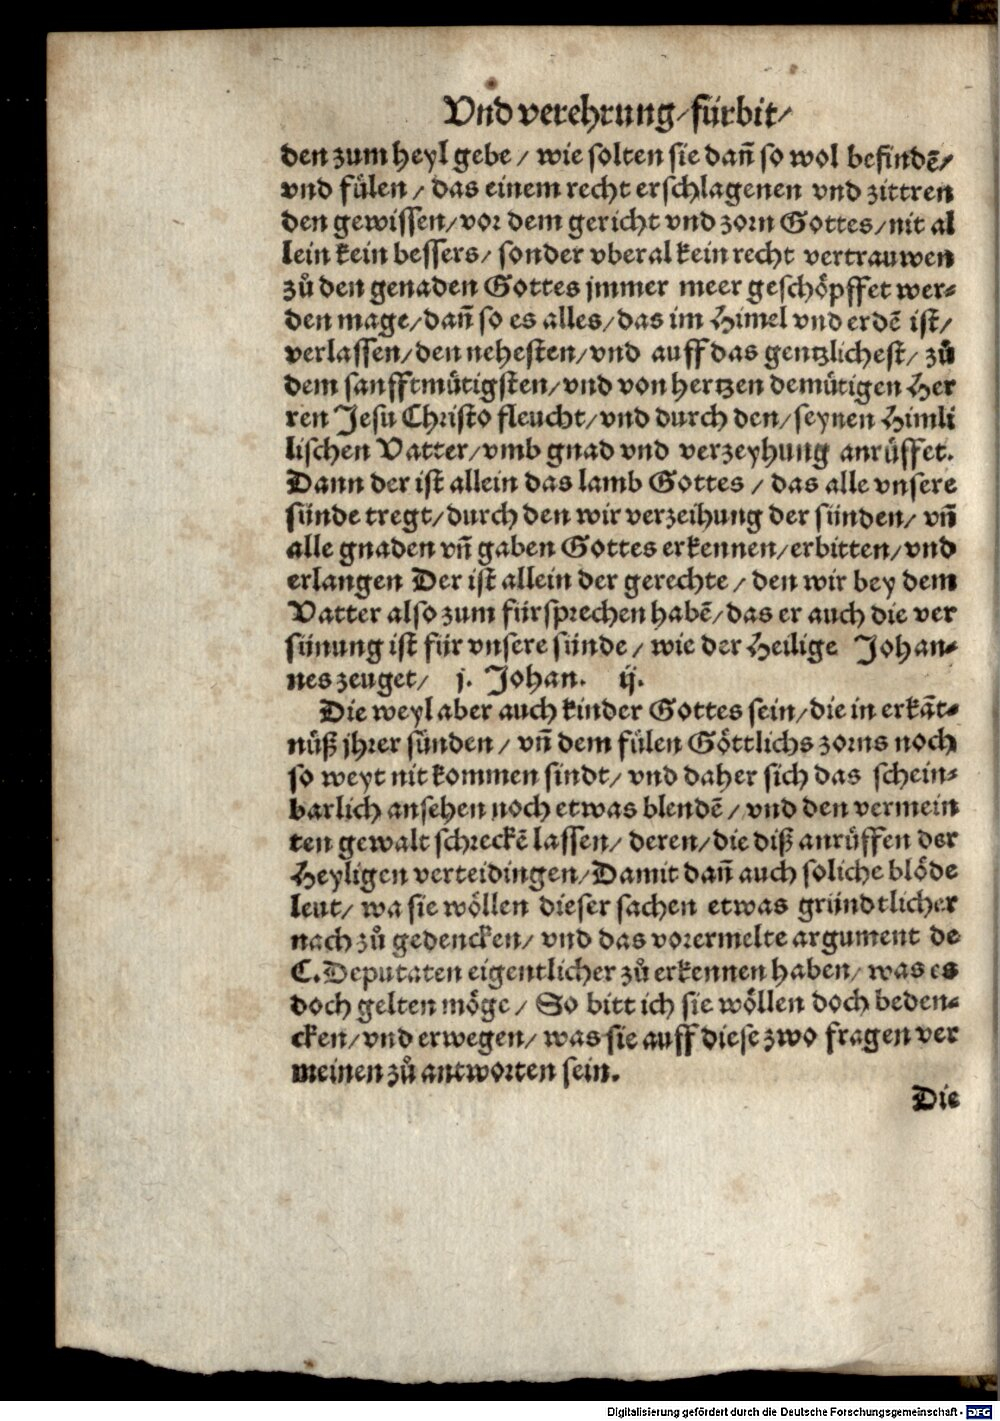 Vnd verehrung/fürbit/
den zum heyl gebe / wie solten sie dañ so wol befindē/
vnd fülen / das einem recht erschlagenen vnd zittren
den gewissen/vor dem gericht vnd zorn Gottes/nit al
lein kein bessers/ sonder vberal kein recht vertrauwen
zů den genaden Gottes jmmer meer geschöpffet wer⸗
den mage/dañ so es alles/das im Himel vnd erdē ist/
verlassen/den nehesten/vnd auff das gentzlichest/ zů
dem sanfftmütigsten/vnd von hertzen demütigen Her
ren Jesu Christo fleucht/vnd durch den/seynen Himli
lischen Vatter/vmb gnad vnd verzeyhung anrüffet.
Dann der ist allein das lamb Gottes / das alle vnsere
sünde tregt/durch den wir verzeihung der sünden/ vñ
alle gnaden vñ gaben Gottes erkennen/erbitten/vnd
erlangen Der ist allein der gerechte / den wir bey dem
Vatter also zum fürsprechen habē/das er auch die ver
sünung ist für vnsere sünde / wie der Heilige Johan⸗
nes zeuget/ j. Johan. ij.
Die weyl aber auch kinder Gottes sein/die in erkāt⸗
nüß jhrer sünden / vñ dem fülen Göttlichs zorns noch
so weyt nit kommen sindt/ vnd daher sich das schein⸗
barlich ansehen noch etwas blendē / vnd den vermein
ten gewalt schreckē lassen/ deren/die diß anrüffen der
Heyligen verteidingen/Damit dañ auch soliche blöde
leut/ wa sie wöllen dieser sachen etwas gründtlicher
nach zů gedencken/ vnd das vorermelte argument de
C.Deputaten eigentlicher zů erkennen haben/ was es
doch gelten möge / So bitt ich sie wöllen doch beden⸗
cken/vnd erwegen/ was sie auff diese zwo fragen ver
meinen zů antworten sein.
Die
Digitalisierung gefördert durch die Deutsche Forschungsgemeinschaft - DFG